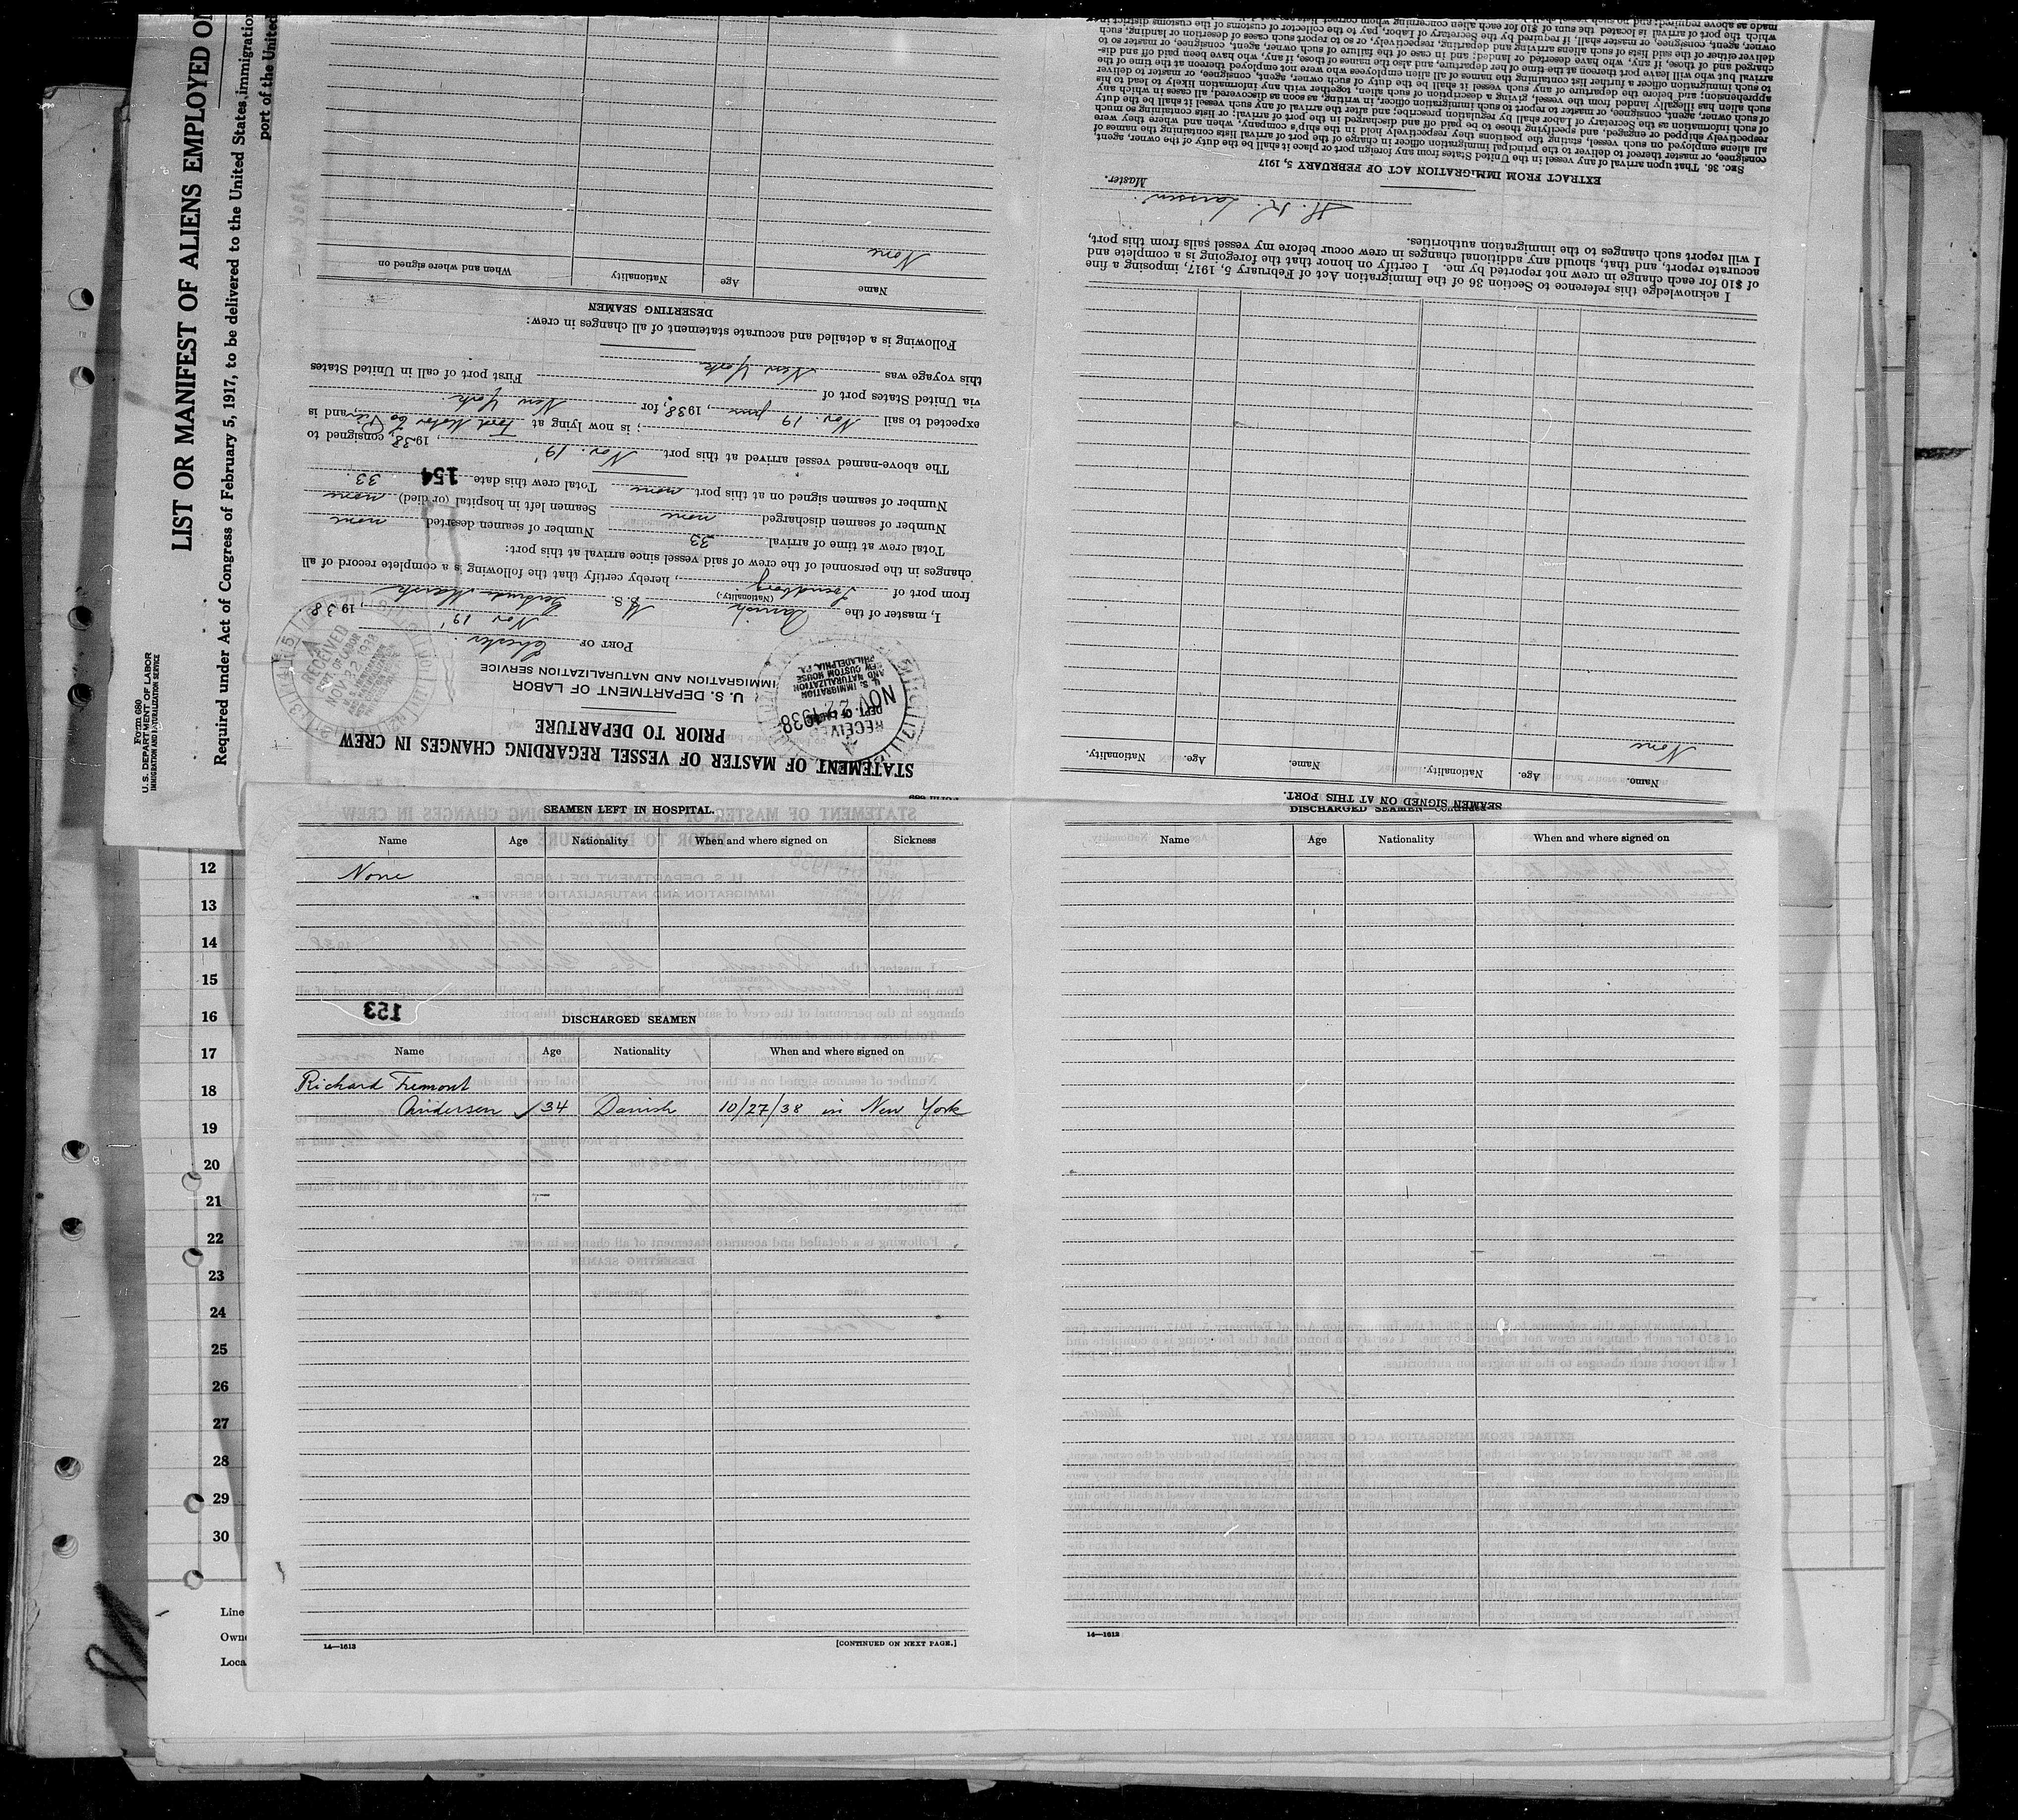 Form 680
U. S. DEPARTMENT OF LABOR
IMMIGRATION AND NATURALIZATION SERVICE
LIST OR MANIFEST OF ALIENS EMPLOYED O
Required under Act of Congress of February 5, 1917, to be delivered to the United States immigration
port of the United
STATEMENT OF MASTER OF VESSEL REGARDING CHANGES IN CREW
PRIOR TO DEPARTURE
U. S. DEPARTMENT OF LABOR
IMMIGRATION AND NATURALIZATION SERVICE
RECEIVED
DEPT. OF LABOR
NOV 22 1938
U. S. IMMIGRATION
AND NATURALIZATION
NEW CUSTOM HOUSE
PHILADELPHIA, PA.
RECEIVED
DEPT. OF LABOR
NOV 22 1938
PORT OF Chester
Nov 19, 1938
I, master of the Danish M. S. Gertrude Maersk
(Nationality.)
from port of Svendborg, hereby certify that the following is a complete record of all
changes in the personnel of the crew of said vessel since arrival at this port:
Total crew at time of arrival 33 Number of seamen deserted none
Number of seamen discharged none Seamen left in hospital (or died) none
Number of seamen signed on at this port none Total crew this date 33
154
The above-named vessel arrived at this port Nov. 19, 1938, consigned to
; is now lying at Ford Motor Co Pier, and is
expected to sail Nov. 19 , 1938, for New York
via United States port of
First port of call in United States
this voyage was New York
Following is a detailed and accurate statement of all changes in crew:
DESERTING SEAMEN
Name Age Nationality When and where signed on
None
SEAMEN SIGNED ON AT THIS PORT.
Name. Age. Nationality. Name. Age. Nationality.
None
I acknowledge this reference to Section 36 of the Immigration Act of February 5, 1917, imposing a fine
of $10 for each change in crew not reported by me. I certify on honor that the foregoing is a complete and
accurate report, and that, should any additional changes in crew occur before my vessel sails from this port,
I will report such changes to the immigration authorities.
Master.
EXTRACT FROM IMMIGRATION ACT OF FEBRUARY 5, 1917
SEC. 36. That upon arrival of any vessel in the United States from any foreign port or place it shall be the duty of the owner, agent,
consignee, or master thereof to deliver to the principal immigration officer in charge of the port of arrival lists containing the names of
all aliens employed on such vessel, stating the positions they respectively hold in the ship's company, when and where they were
respectively shipped or engaged, and specifying those to be paid off and discharged in the port of arrival; or lists containing so much
of such information as the Secretary of Labor shall by regulation prescribe; and after the arrival of any such vessel it shall be the duty
of such owner, agent, consignee, or master to report to such immigration officer, in writing, as soon as discovered, all cases in which any
such alien has illegally landed from the vessel, giving a description of such alien, together with any information likely to lead to his
apprehension; and before the departure of any such vessel it shall be the duty of such owner, agent, consignee, or master to deliver
to such immigration officer a further list containing the names of all alien employees who were not employed thereon at the time of the
arrival but who will leave port thereon at the time of her departure, and also the names of those, if any, who have been paid off and dis-
charged and of those, if any, who have deserted or landed; and in case of the failure of such owner, agent, consignee, or master so to
deliver either of the said lists of such aliens arriving and departing, respectively, or so to report such cases of desertion or landing, such
owner, agent, consignee, or master shall, if required by the Secretary of Labor, pay to the collector of customs of the customs district in
which the port of arrival is located the sum of $10 for each alien concerning whom correct lists are not
SEAMEN LEFT IN HOSPITAL.
Name Age Nationality When and where signed on Sickness
None
153
DISCHARGED SEAMEN
Name Age Nationality When and where signed on
Richard Tremont
Andersen 34 Danish 10/27/38 in New York
14—1613
[CONTINUED ON NEXT PAGE.]
DISCHARGED SEAMEN—Continued
Name Age Nationality When and where signed on
14—1613
12
13
14
15
16
17
18
19
20
21
22
23
24
25
26
27
28
29
30
Line
Owne
Loca